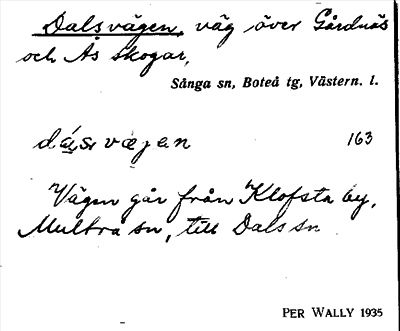 Dalsvägen, väg över Gårdnäs
och Ås skogar,
Sånga sn, Boteå tg, Västern. l.
163
Vägen går från Klofsta by,
Multrå sn, till Dals sn
PER WALLY 1935